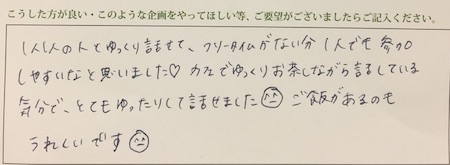 こうした方が良い・このような企画をやってほしい等、ご要望がございましたらご記入ください。
1人1人の人とゆっくり話せて、フリータイムがない分1人でも参加
しやすいなと思いました♡ カフェでゆっくりお茶しながら話している
気分で、とてもゆったりして話せました ご飯があるのも
うれしいです